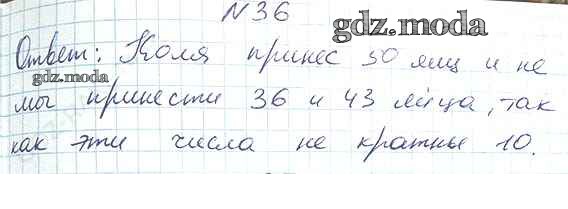 N 36
gdz.moda
Ответ: Коля принес 50 яиц и не
gdz.moda
мог принести 36 и 43 яйца, так
как эти числа не кратны 10.